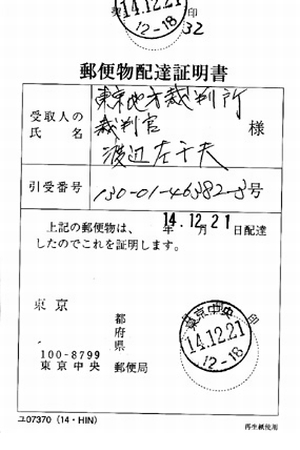 14.12.21
12-18
印
32
郵便物配達証明書
受取人の氏名
東京地方裁判所
裁判官
渡辺左千夫
様
引受番号
130-01-46382-3号
上記の郵便物は、14年12月21日配達
したのでこれを証明します。
東京
都
府
県
100-8799
東京中央 郵便局
東京中央
14.12.21
12-18
印
ユ07370(14・HIN)
再生紙使用